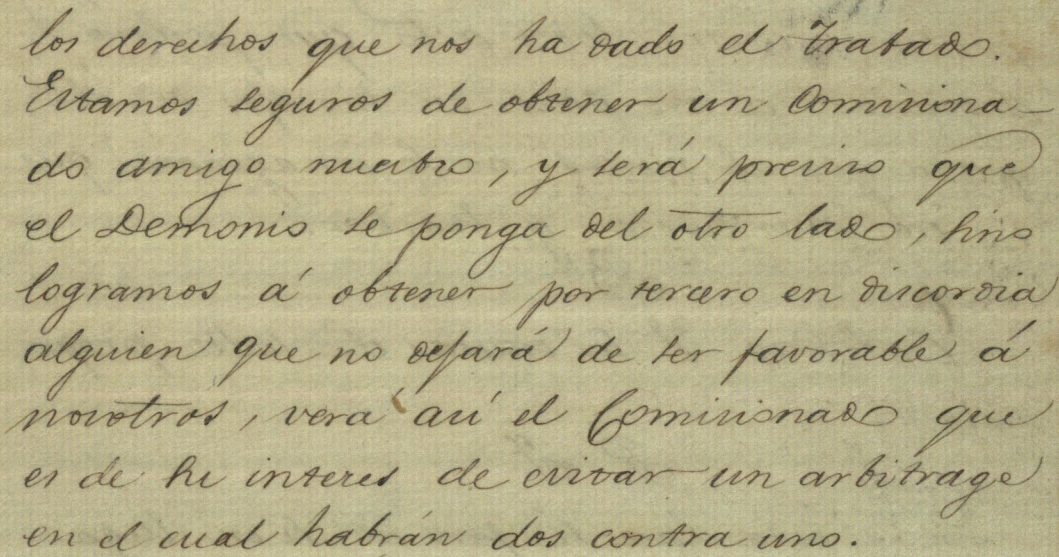 los derechos que nos ha dado el Tratado.
Estamos seguros de obtener un Comisiona-
do amigo nuestro, y será preciso que
el Demonio se ponga del otro lado, sino
logramos á obtener por tercero en discordia
alguien que no dejará de ser favorable á
nosotros, vera así el Comisionado que
es de su interes de evitar un arbitrage
en el cual habrán dos contra uno.